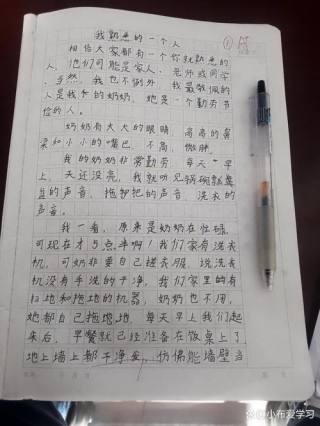 我熟悉的一个人
相信大家都有一个你就熟悉的
人,他们可能是家人、老师或同学
。当然,我也不例外,我最敬佩的
人是我的奶奶,她是一个勤劳节
俭的人。
奶奶有大大的眼睛,高高的鼻
梁和小小的嘴巴,不高,微胖。
我的奶奶非常勤劳,每天一早
上,天还没亮,我就听见锅碗瓢盆
的声音,拖把的声音,洗衣的
声音。
我一看,原来是奶奶在忙碌,
可现在才5点半啊!我们家有洗衣
机,可奶非要自己搓衣服,说洗衣
机没有手洗的干净,我们家里的有
扫地和拖地的机器,奶奶也不用,
她都自己拖地,每天早上我们起
床后,早餐就已经准备在饭桌上了
地上墙上都干净,仿佛能墙壁当
@小布爱学习